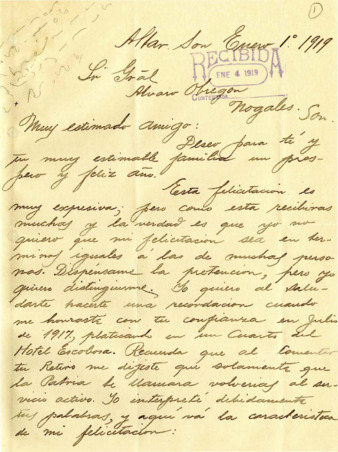 1
Altar Son Enero 1º 1919
RECIBIDA
ENE 4 1919
Sr Grâl
Alvaro Obregon
Nogales. Son.
Muy estimado amigo:
Deseo para tí y
tu muy estimable familia un pros-
pero y feliz año.
Esta felicitación es
muy expresiva; pero como esta recibiras
muchas y la verdad es que yo no
quiero que mi felicitación sea en ter-
minos iguales a las de muchas perso
nas. Dispensame la pretencion, pero yo
quiero distinguirme. Yo quiero al salu-
darte hacerte una recordación cuando
me honraste con tu confianza en Julio
de 1917, platicando en un Cuarto del
Hotel Escobosa. Recuerda que al comentar
tu Retiro me dijiste que solamente que
la Patria te llamara volverias al ser-
vicio activo. Yo interpreté debidamente
tus palabras, y aqui vá la caracteristica
de mi felicitacion: